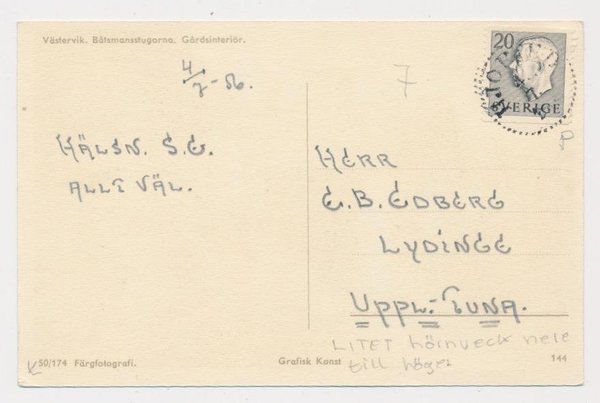 Västervik. Båtsmansstugorna. Gårdsinteriör.
4/7-56.
7
20
SVERIGE
HÄLSN. S.E.
ALLT VÄL.
HERR
E.B. EDBERG
LYDINGE
UPPL.-TUNA.
LITET hörnveck nere
till höger
K50/174 Färgfotografi.
Grafisk Konst
144